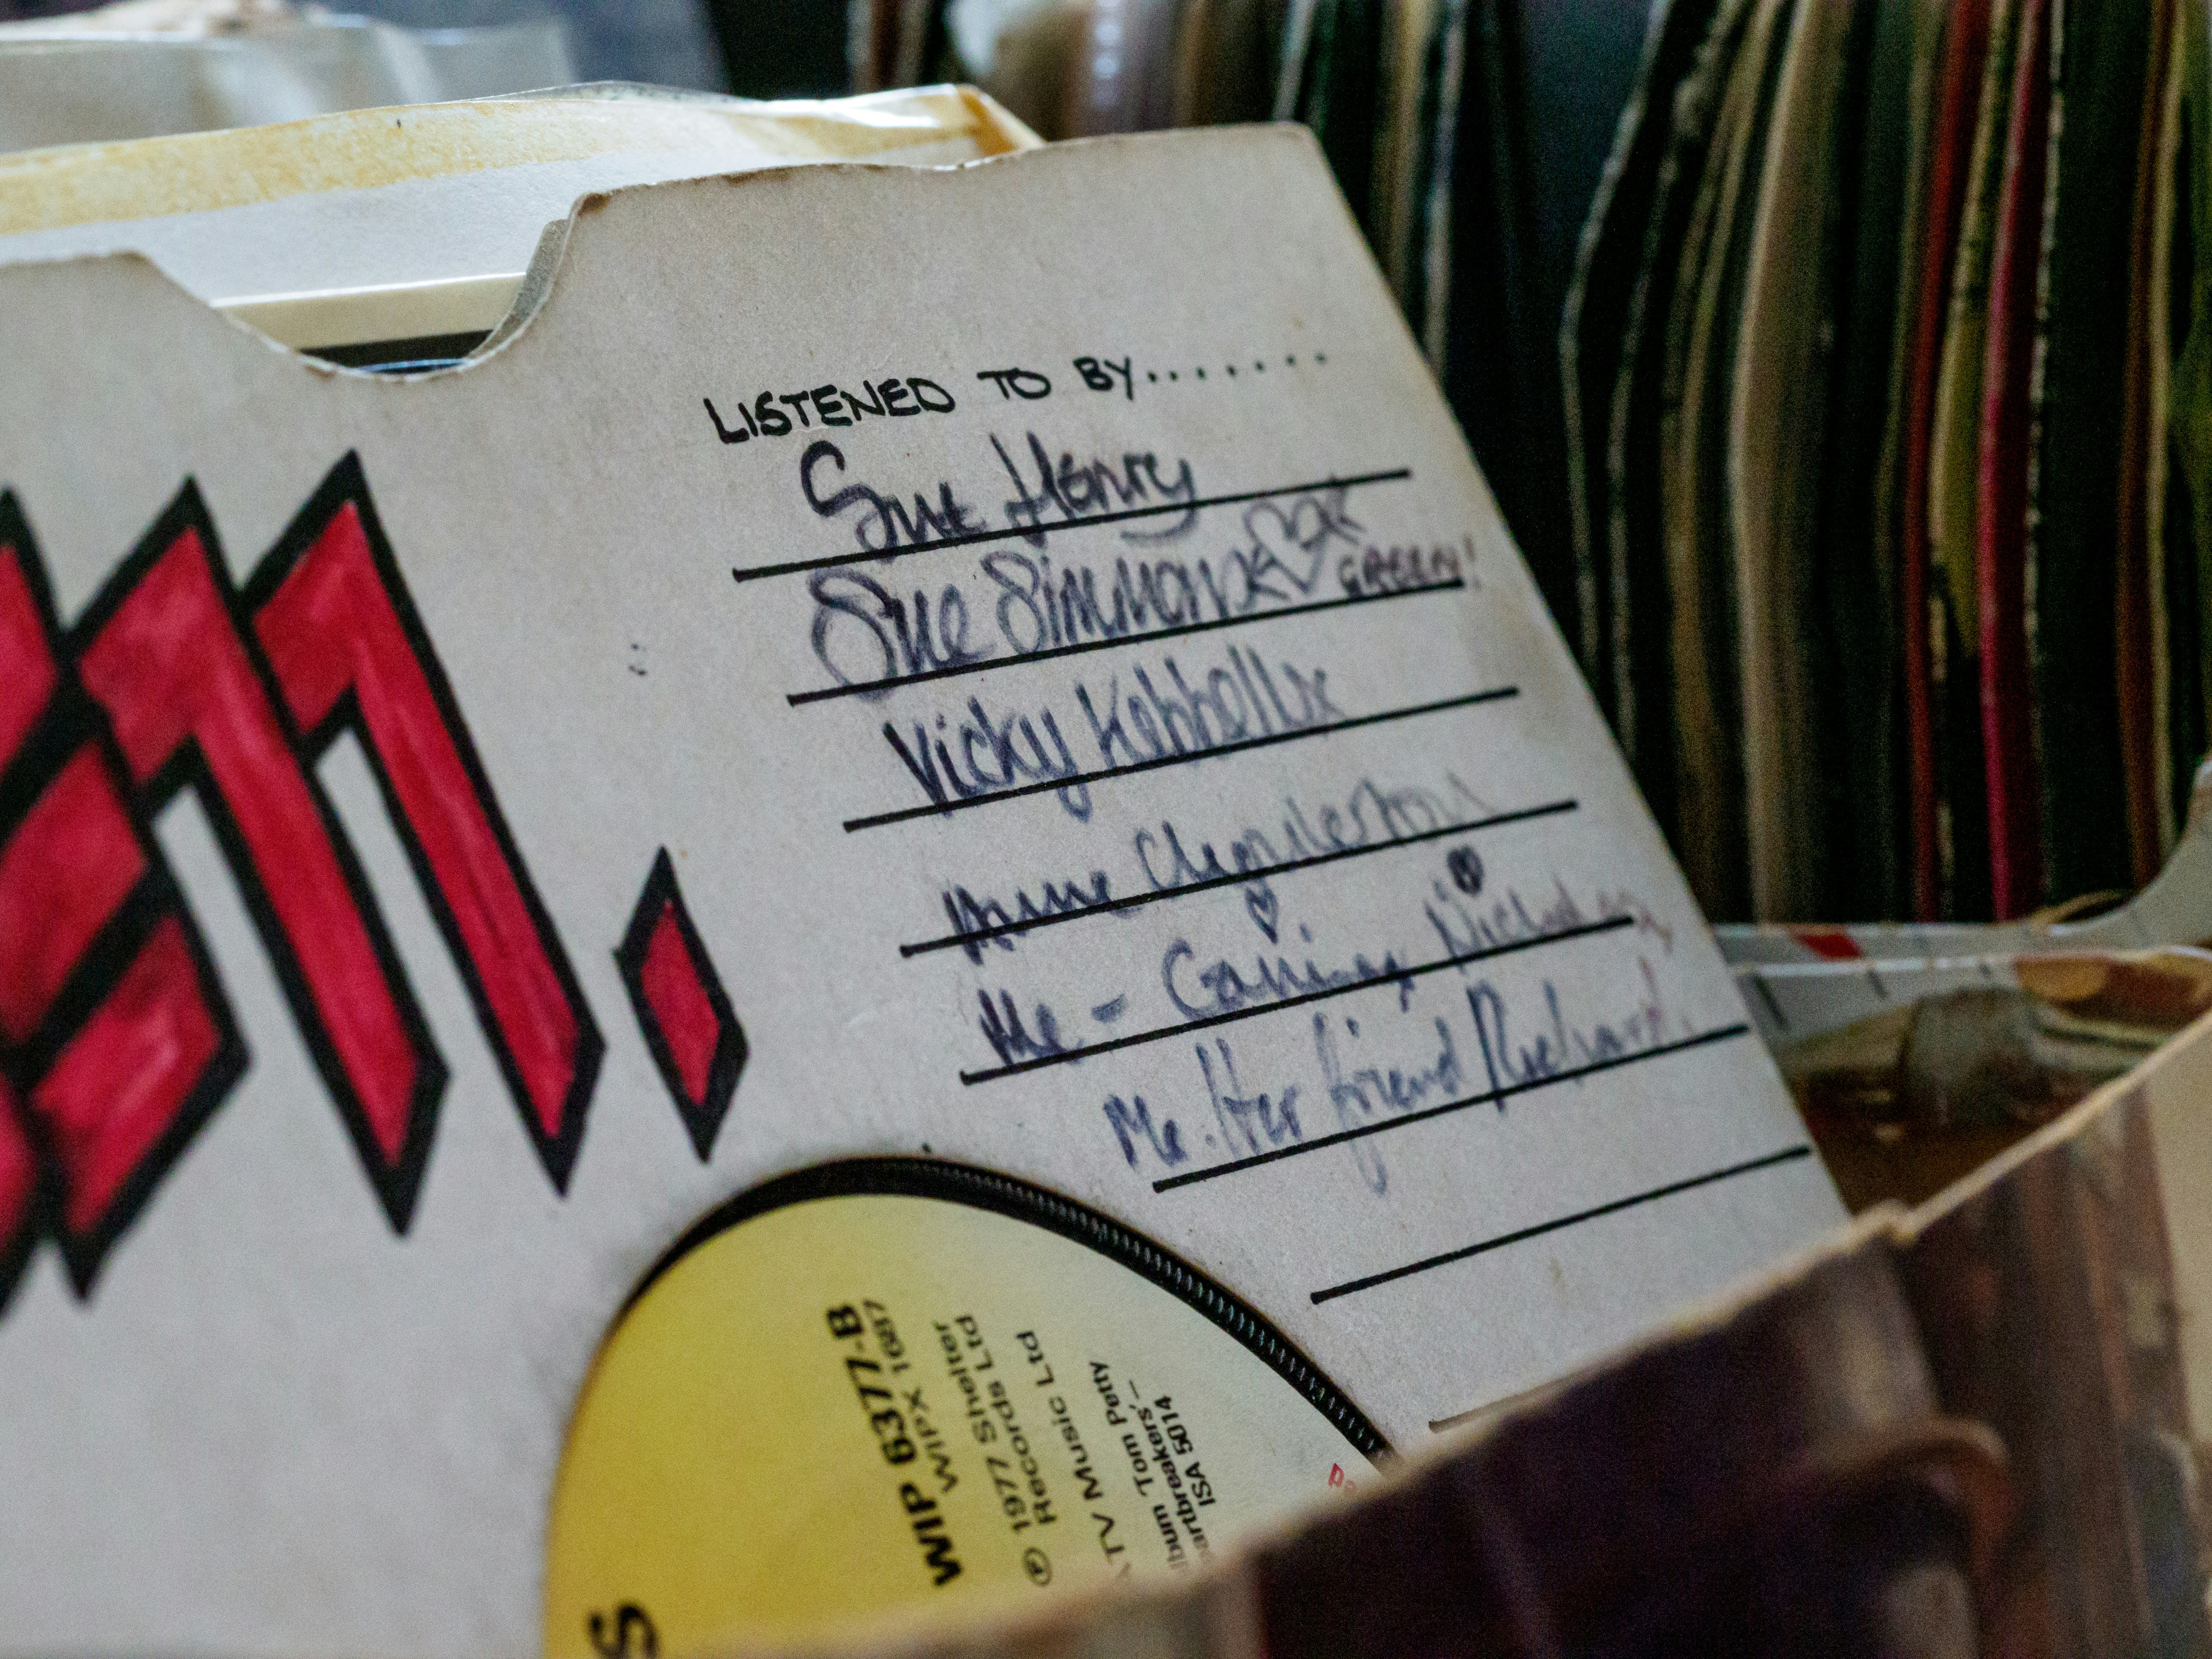 LISTENED TO BY.......
Sue Henry
Sue Simmons
GREEN!
Vicky Kebbell x
Anne
Me - Nicholas
Me. Her friend Richard.
WIP 6377-B
WIPX 1687
℗ 1977 Shelter
Records Ltd
ATV Music Ltd
lbum Tom Petty
artbreakers'—
ISA 5014
S